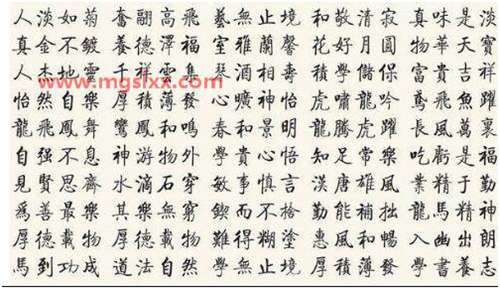 人淡如菊奮翮高飛藝無止境和敬清寂真味是淡
真金不鍍養德澤福室雅蘭馨花好月圓物華天寶
人杰地靈千祥雲集琴酒相壽積學儲保富貴吉祥
www.mgslxx.com
怡然自樂厚積薄發心曠神怡虎嘯龍吟鳶飛魚躍
龍飛鳳舞鸞鳳和鳴春和景明龍騰虎躍長風萬裏
自強不息神游物外學貴心悟知足常樂吃虧是福
見賢思齊水滴石穿敏事慎言漢唐雄風業精于勤
爲善最樂其樂無窮鍥而不捨勤能補拙龍馬精神
厚德載物厚德載物難得糊塗惠風和暢入幽出朗
馬到功成道法自然學無止境厚積薄發學書養志